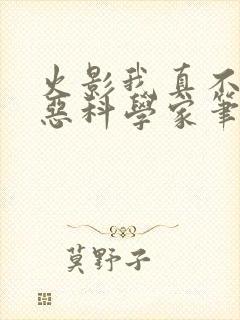 火影我真不
惡科學家筆
莫野子